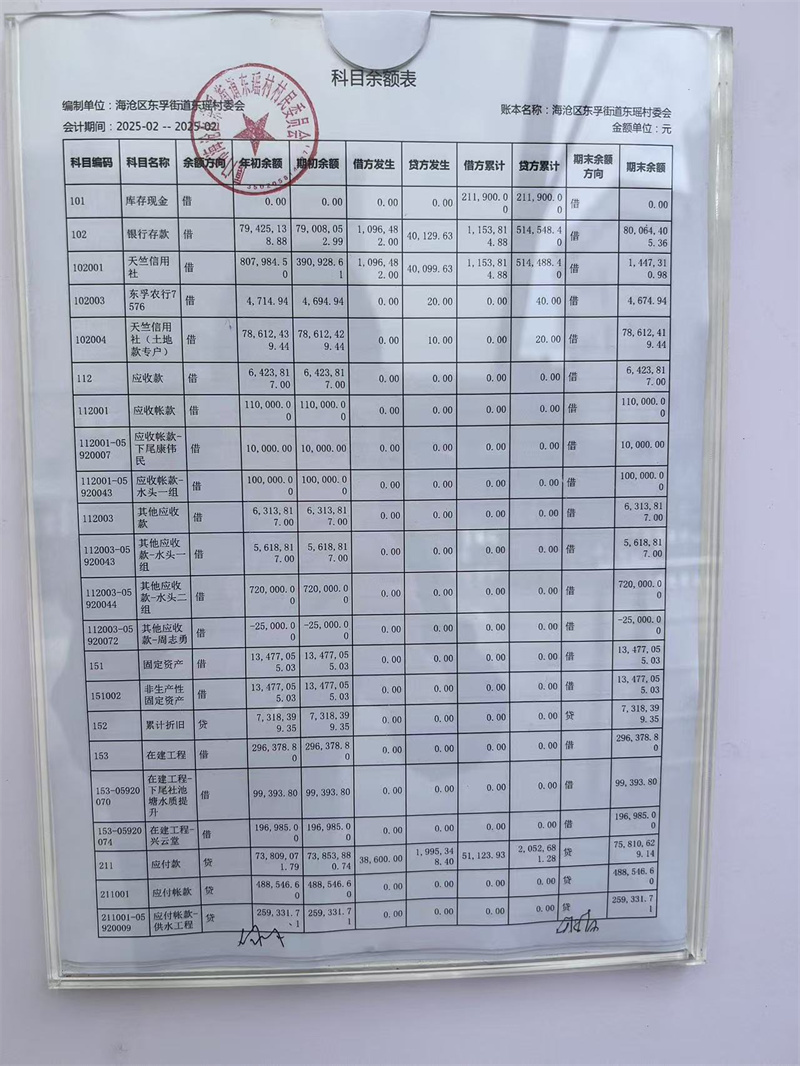 科目余额表
编制单位：海沧区东孚街道东瑶村委会 账本名称：海沧区东孚街道东瑶村委会
会计期间：2025-02 -- 2025-02 金额单位：元
科目编码 科目名称 余额方向 年初余额 期初余额 借方发生 贷方发生 借方累计 贷方累计 期末余额方向 期末余额
101 库存现金 借 0.00 0.00 0.00 0.00 211,900.00 211,900.00 借 0.00
102 银行存款 借 79,425,138.88 79,008,052.99 1,096,482.00 40,129.63 1,153,814.88 514,548.40 借 80,064,405.36
102001 天竺信用社 借 807,984.50 390,928.61 1,096,482.00 40,099.63 1,153,814.88 514,488.40 借 1,447,310.98
102003 东孚农行7576 借 4,714.94 4,694.94 0.00 20.00 0.00 40.00 借 4,674.94
102004 天竺信用社（土地款专户） 借 78,612,439.44 78,612,429.44 0.00 10.00 0.00 20.00 借 78,612,419.44
112 应收款 借 6,423,817.00 6,423,817.00 0.00 0.00 0.00 0.00 借 6,423,817.00
112001 应收帐款 借 110,000.00 110,000.00 0.00 0.00 0.00 0.00 借 110,000.00
112001-05920007 应收帐款-下尾康伟民 借 10,000.00 10,000.00 0.00 0.00 0.00 0.00 借 10,000.00
112001-05920043 应收帐款-水头一组 借 100,000.00 100,000.00 0.00 0.00 0.00 0.00 借 100,000.00
112003 其他应收款 借 6,313,817.00 6,313,817.00 0.00 0.00 0.00 0.00 借 6,313,817.00
112003-05920043 其他应收款-水头一组 借 5,618,817.00 5,618,817.00 0.00 0.00 0.00 0.00 借 5,618,817.00
112003-05920044 其他应收款-水头二组 借 720,000.00 720,000.00 0.00 0.00 0.00 0.00 借 720,000.00
112003-05920072 其他应收款-周志勇 借 -25,000.00 -25,000.00 0.00 0.00 0.00 0.00 借 -25,000.00
151 固定资产 借 13,477,055.03 13,477,055.03 0.00 0.00 0.00 0.00 借 13,477,055.03
151002 非生产性固定资产 借 13,477,055.03 13,477,055.03 0.00 0.00 0.00 0.00 借 13,477,055.03
152 累计折旧 贷 7,318,399.35 7,318,399.35 0.00 0.00 0.00 0.00 贷 7,318,399.35
153 在建工程 借 296,378.80 296,378.80 0.00 0.00 0.00 0.00 借 296,378.80
153-05920070 在建工程-下尾社池塘水质提升 借 99,393.80 99,393.80 0.00 0.00 0.00 0.00 借 99,393.80
153-05920074 在建工程-兴云堂 借 196,985.00 196,985.00 0.00 0.00 0.00 0.00 借 196,985.00
211 应付款 贷 73,809,071.79 73,853,880.74 38,600.00 1,995,348.40 51,123.93 2,052,681.28 贷 75,810,629.14
211001 应付帐款 贷 488,546.60 488,546.60 0.00 0.00 0.00 0.00 贷 488,546.60
211001-05920009 应付帐款-供水工程 贷 259,331.71 259,331.71 0.00 0.00 0.00 0.00 贷 259,331.71